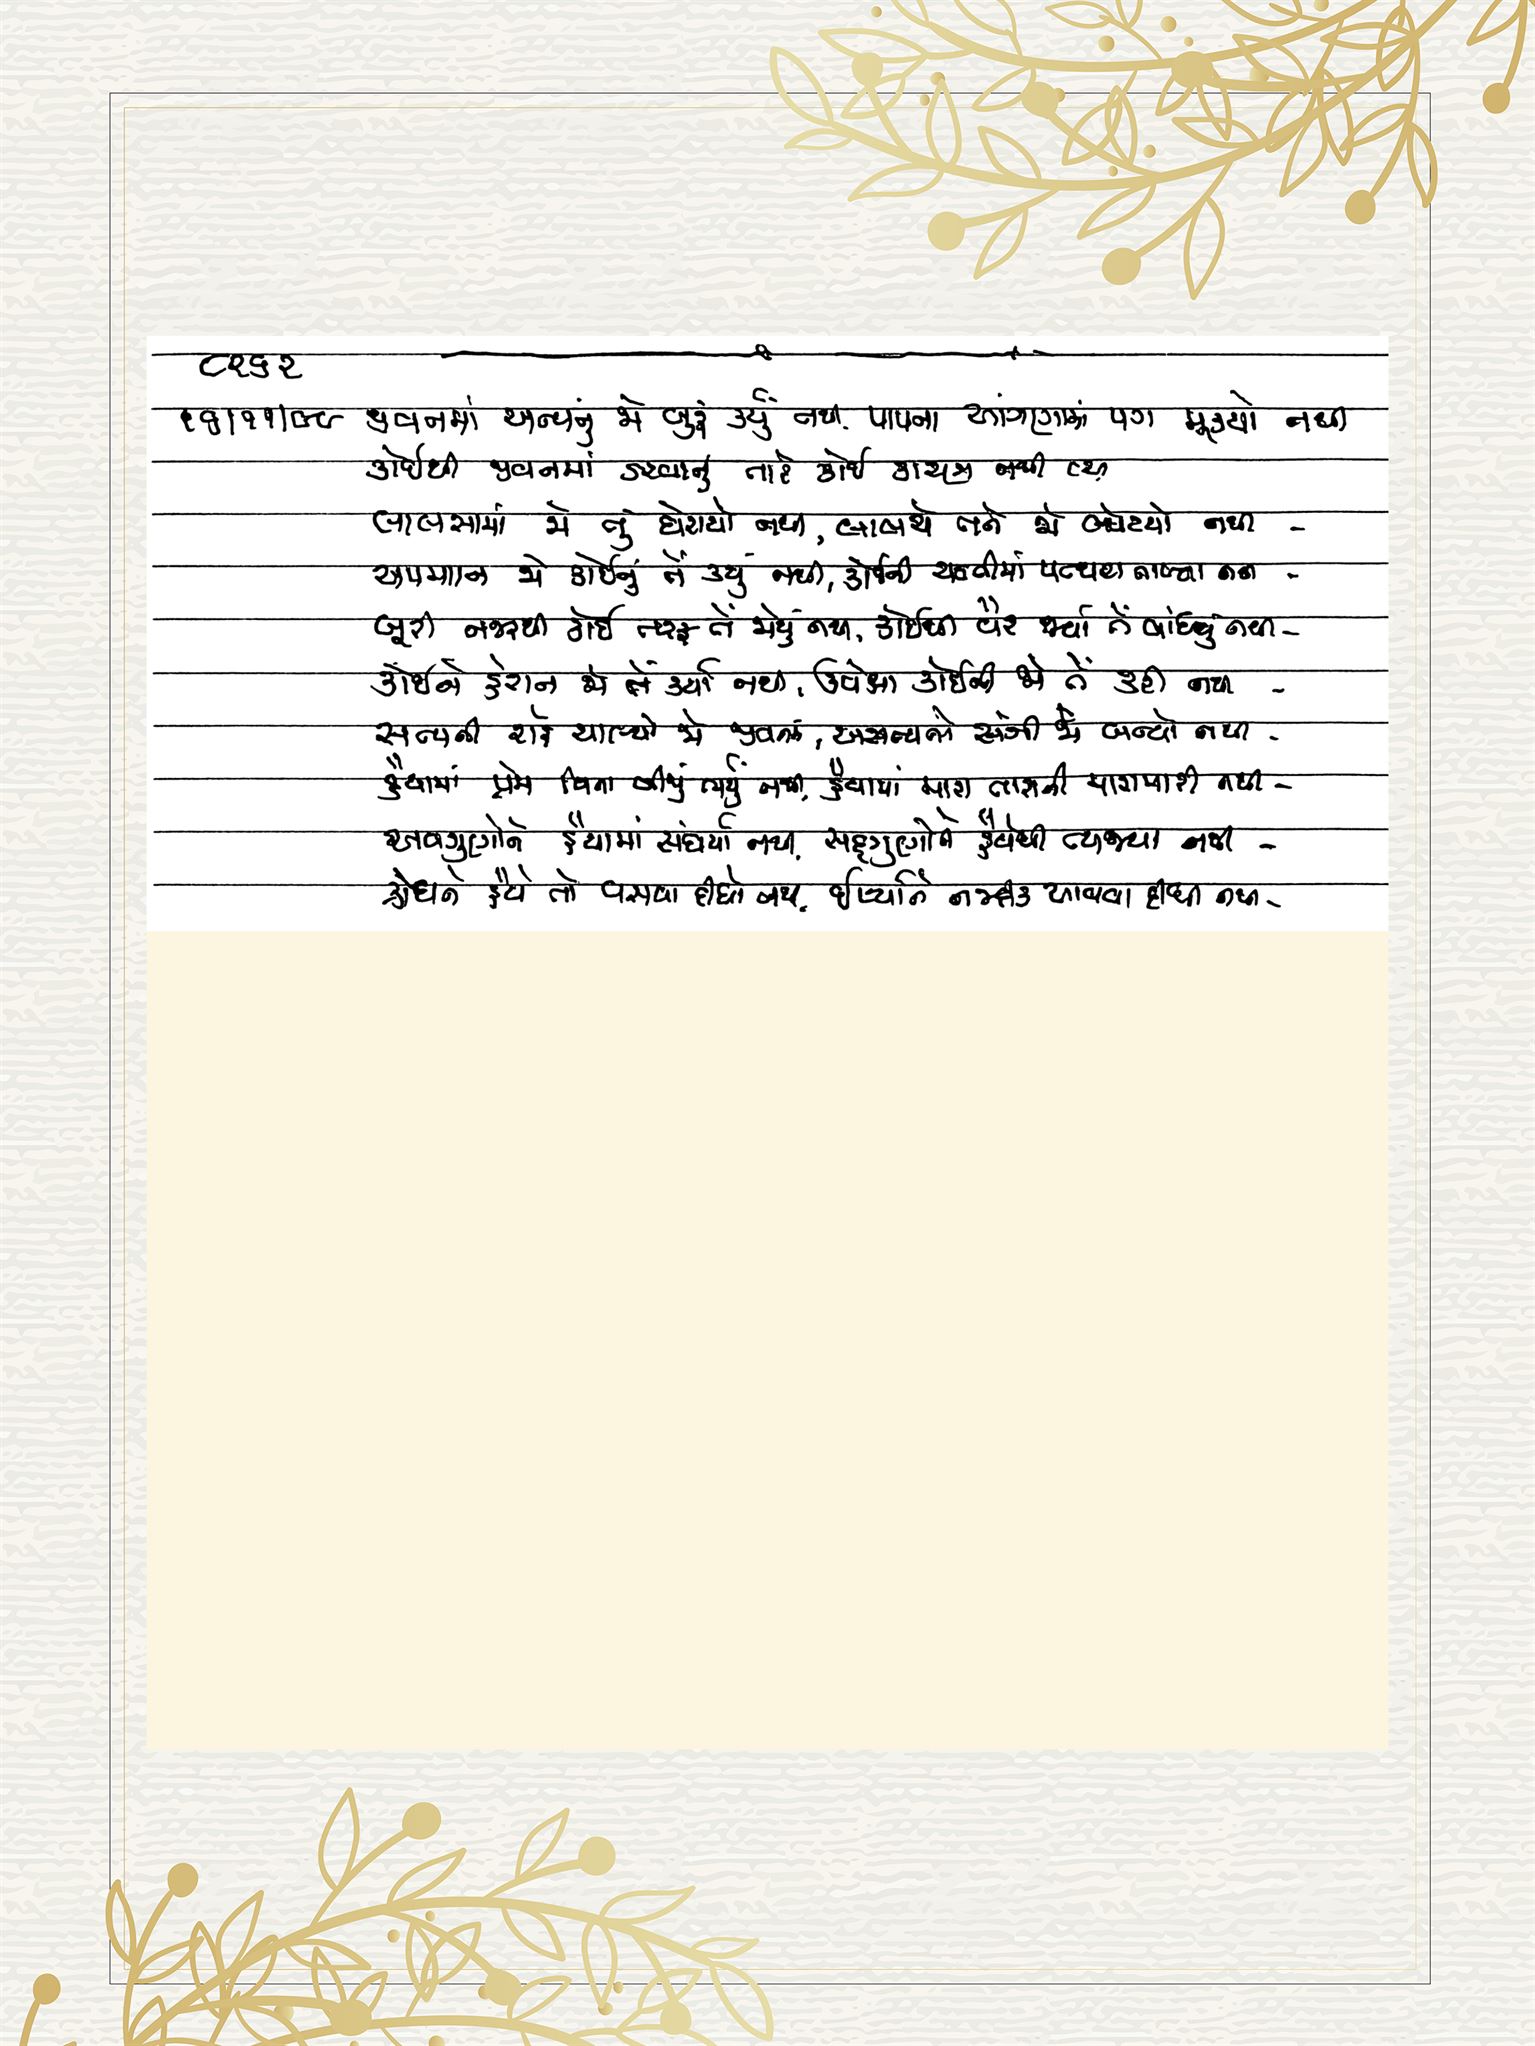 ૮૨૬૨
જીવનમાં અન્યનું જો બુરું કર્યું નથી, પાપના આંગણામાં પગ મૂક્યો નથી
કોઈથી જીવનમાં ડરવાનું તારે કોઈ કારણ નથી
લાલસામાં જો તું ઘેરાયો નથી, લાલચે તને જો લપેટયો નથી -
અપમાન જો કોઈનું તેં કર્યું નથી, કોઈની પથ્થરા નાખ્યા નથી -
બૂરી નજરથી કોઈ તરફ તેં જોયું નથી, કોઈથી વૈર જ્યાં તેં બાંધ્યું નથી -
કોઈને હેરાન જો તેં કર્યા નથી, ઉપેક્ષા કોઈની જો તેં કરી નથી -
સત્યની રાહે ચાલ્યો જો જીવનમાં, અસત્યનો સંગી જો બન્યો નથી -
હૈયામાં પ્રેમ વિના બીજું ભર્યું નથી, હૈયામાં મારા તારાની મારામારી નથી -
અવગુણોને હૈયામાં સંઘર્યા નથી, સદ્દગુણોને હૈયેથી ત્યજ્યા નથી -
ક્રોધને હૈયે તો વસવા દીધો નથી, ઈર્ષ્યાને નજદીક આવવા દીધી નથી -